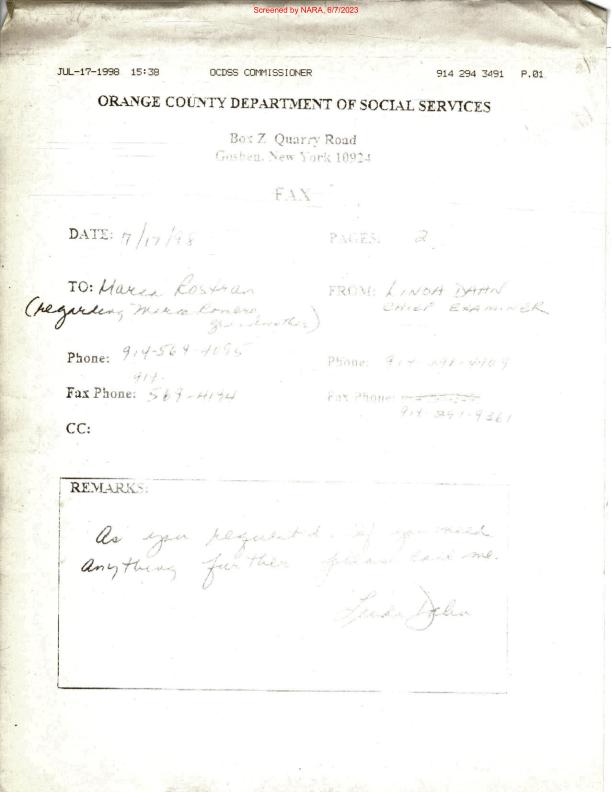 Screened by NARA, 6/7/2023
JUL-17-1998 15:38 OCDSS COMMISSIONER 914 294 3491 P.01
ORANGE COUNTY DEPARTMENT OF SOCIAL SERVICES
Box Z Quarry Road
Goshen, New York 10924
FAX
DATE: 7/17/98 PAGES: 2
TO: Maria Rostran FROM: LINDA DAHN
(regarding Maria Romero, CHIEF EXAMINER
grandmother)
Phone: 914-569-4095 Phone:
914-
Fax Phone: 569-4194 Fax Phone:
914-291-9361
CC:
REMARKS:
As you requested. If you need
anything further please call me.
Linda Dahn